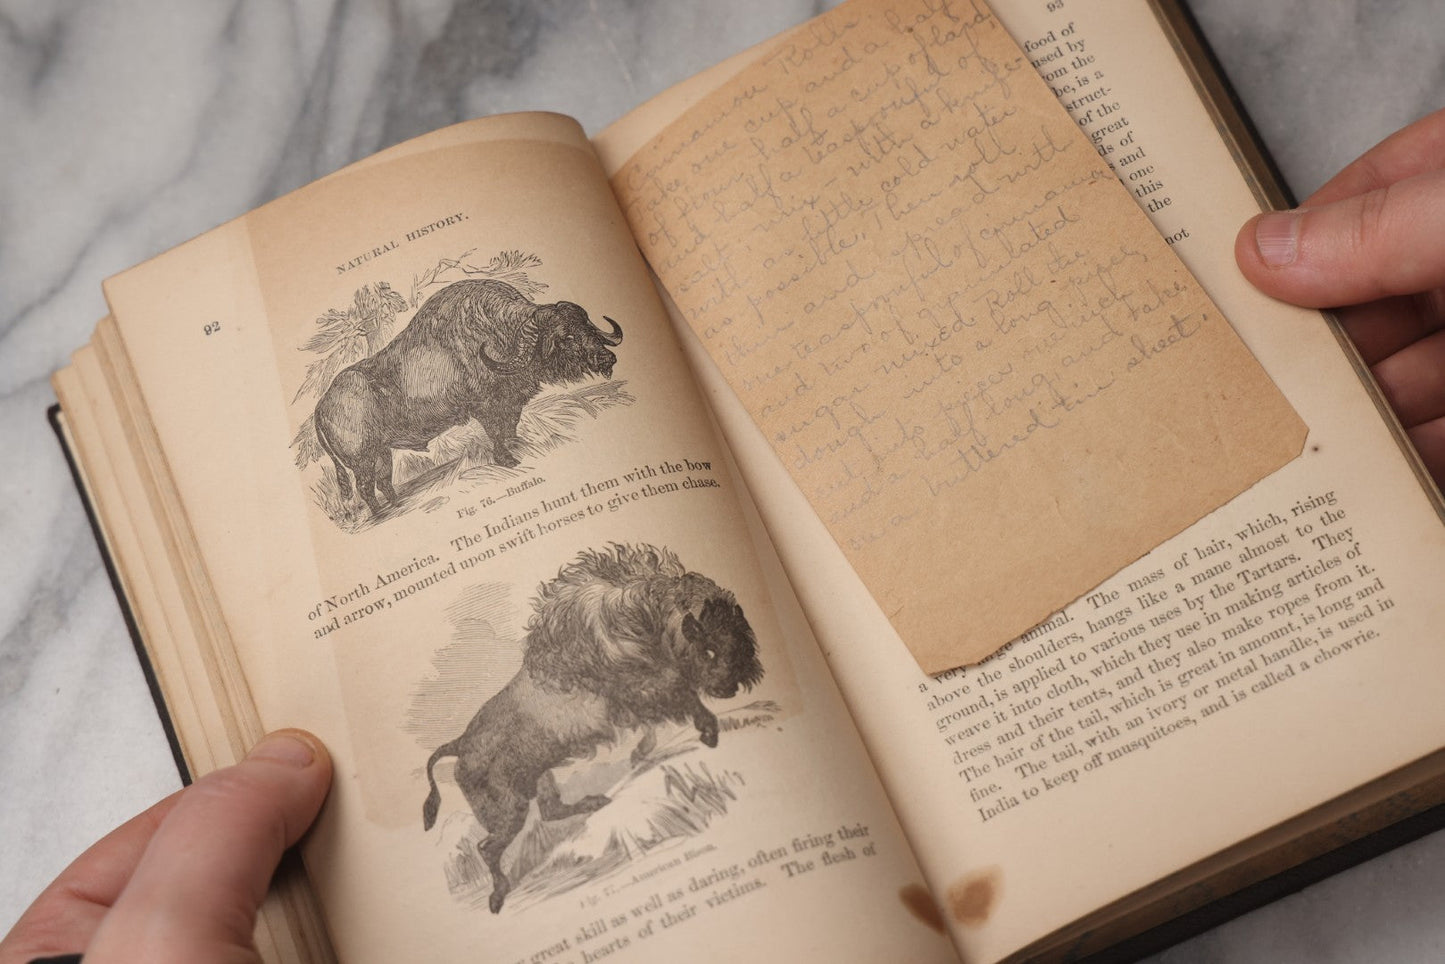 92
NATURAL HISTORY.
Fig. 76.—Buffalo.
of North America. The Indians hunt them with the bow
and arrow, mounted upon swift horses to give them chase.
Fig. 77.—American Bison.
great skill as well as daring, often firing their
hearts of their victims. The flesh of
Cinnamon Rolls.
Take one cup and a half
of flour, half a cup of lard
and half a teaspoonful of
salt mix with a knife
with as little cold water
as possible. Then roll
thin and spread with
one teaspoonful of cinnamon
and two of granulated
sugar mixed. Roll the
dough into a long piece,
cut into pieces one inch
and a half long and bake
on a buttered tin sheet.
93
food of
used by
from the
be, is a
struct-
of the
great
ds of
and
one
this
the
not
a very large animal. The mass of hair, which, rising
above the shoulders, hangs like a mane almost to the
ground, is applied to various uses by the Tartars. They
weave it into cloth, which they use in making articles of
dress and their tents, and they also make ropes from it.
The hair of the tail, which is great in amount, is long and
fine. The tail, with an ivory or metal handle, is used in
India to keep off musquitoes, and is called a chowrie.